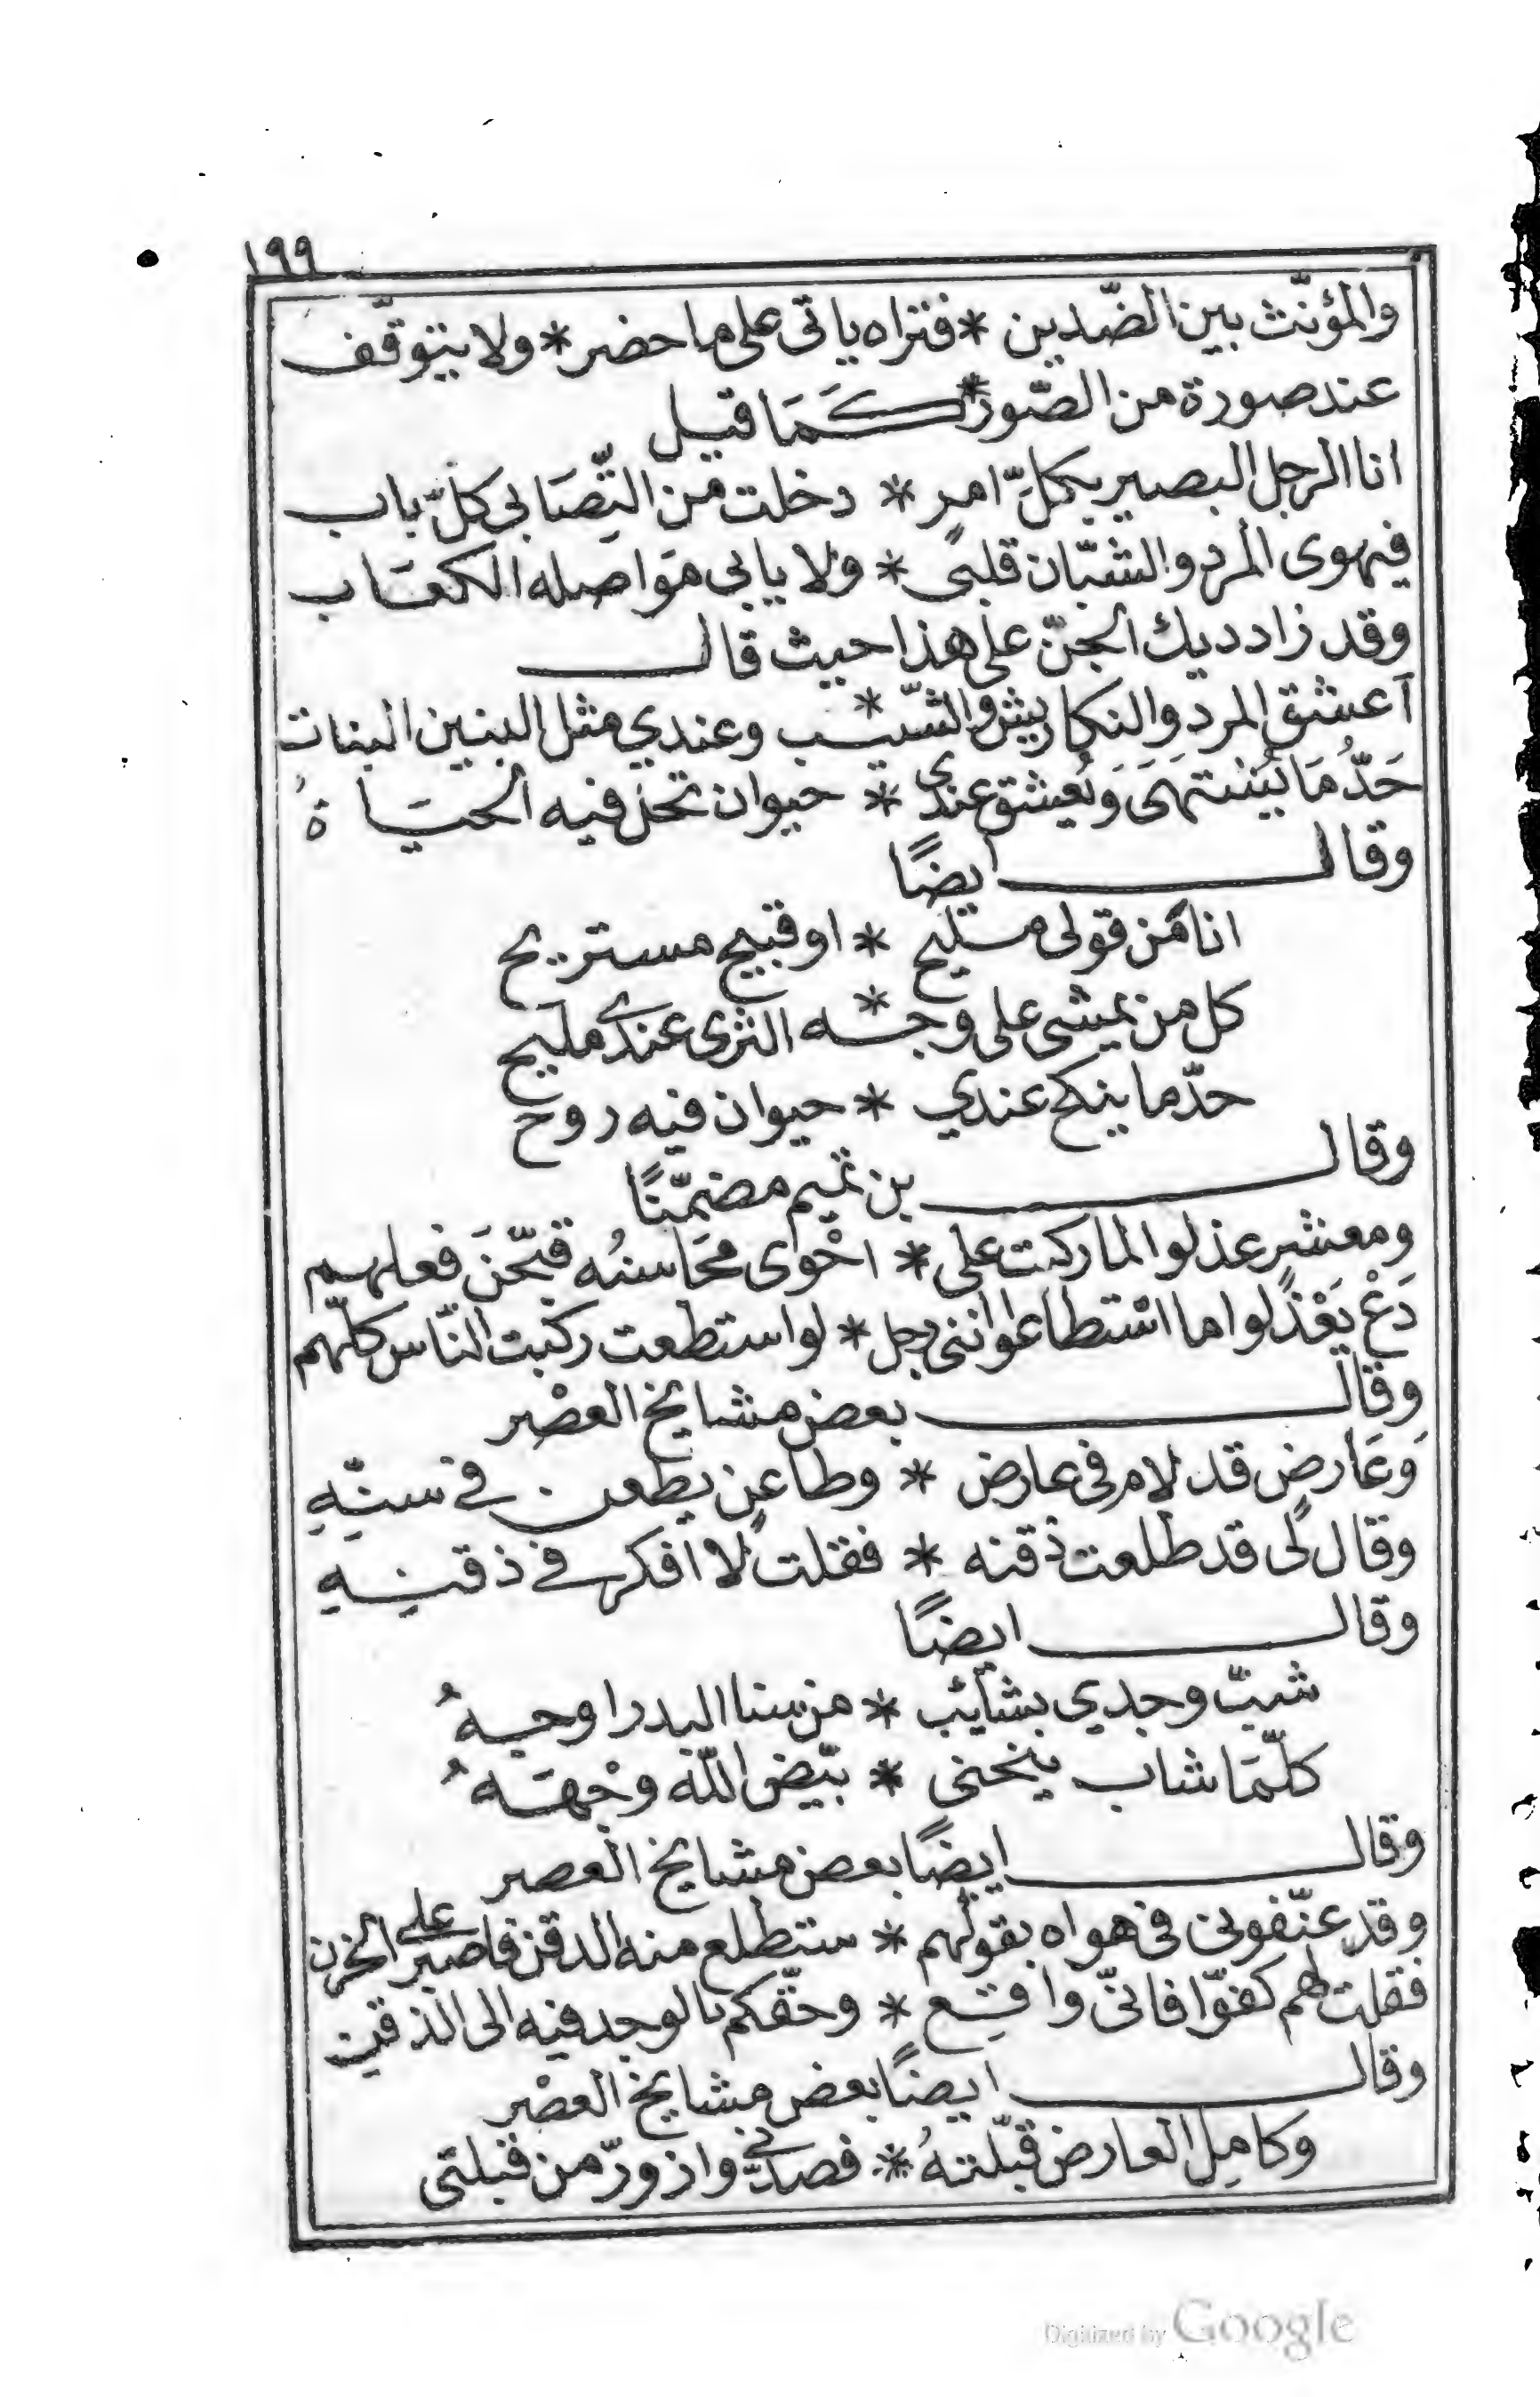 ١٩٩
والمؤنّث بين الضّدين * فتراه ياتى على ما حضر * ولا يتوقّف
عند صورة من الصّور * كَمَا قيل
انا الرجل البصير بكلّ امرٍ * دخلت من التّصَابى كلّ باب
فيهوى المرد والشبّان قلبى * ولا يابى مواصله الكعَاب
وقد زاد ديك الجنّ على هذا حيث قال
آعشق المرد والنكاريش والشّيب * وعندي مثل البنين البنات
حَدُّ مَا يُشتهَى وَيُعشق عندى * حيوان تحل فيه الحيَاةُ
وقال ايضًا
انا من قولى مليح * او قبيح مستريح
كل من يمشى على وجه * الثرى عندى مليح
حدّ ما ينكح عندي * حيوان فيه روح
وقال بن تميم مضمّنًا
ومعشرٍ عذلوا لما ركبت على * احْوى محَاسنُه قبّحْنَ فعلهم
دَعْ يَعْذلوا ما اسْتطاعوا اننى رجل * لو استطعت ركبت النّاس كلّهم
وقال بعض مشايخ العصْر
وَعَارض قد لام فى عارض * وطاعنٍ يطعن في سنّهِ
وقال لى قد طلعت ذقنه * فقلت لا افكر في ذقنهِ
وقال ايضًا
شبّ وجدي بشائب * من سنا البدر اوجهُ
كلّمَا شاب ينحنى * بيّض الله وجْهَهُ
وقال ايضًا بعض مشايخ العصر
وقد عنّفونى فى هواه بقولهم * ستطلع منه الدقن فاصبر على الحزن
فقلت لهم كفوّا فانىّ واقع * وحقّكم بالوجد فيه الى الذقن
وقال ايضًا بعض مشايخ العصْر
وكامِل العارض قبّلتهُ * فصدّنى وازورّ من قبلتى
Digitized by Google